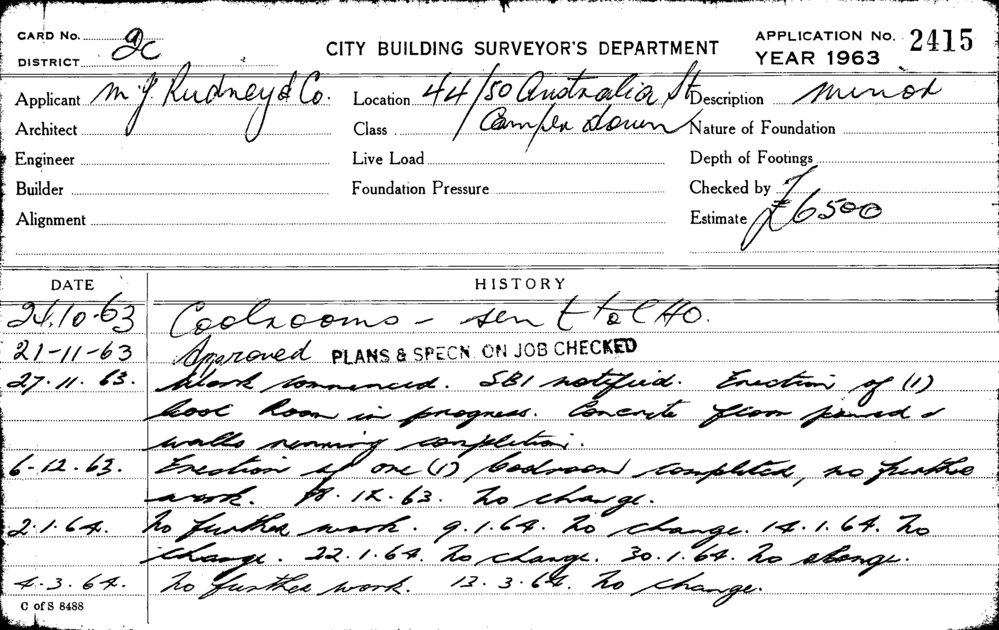 CARD No. 2c
DISTRICT
CITY BUILDING SURVEYOR'S DEPARTMENT
APPLICATION No. 2415
YEAR 1963
Applicant M J Rudney & Co. Location 44/50 Australia St Description minor
Architect Class Camperdown Nature of Foundation
Engineer Live Load Depth of Footings
Builder Foundation Pressure Checked by
Alignment Estimate £6500
DATE HISTORY
24.10.63 Coolrooms - sent to CHO.
21-11-63 Approved PLANS & SPECN. ON JOB CHECKED
27.11.63. Work commenced. SBI notified. Erection of (1)
Cool Room in progress. Concrete floor poured &
walls nearing completion.
6-12.63. Erection of one (1) Coolroom completed, no further
work. 18.12.63. No change.
2.1.64. No further work. 9.1.64. No change. 14.1.64. No
change. 22.1.64. No change. 30.1.64. No change.
4.3.64. No further work. 13.3.64. No change.
C of S 8488